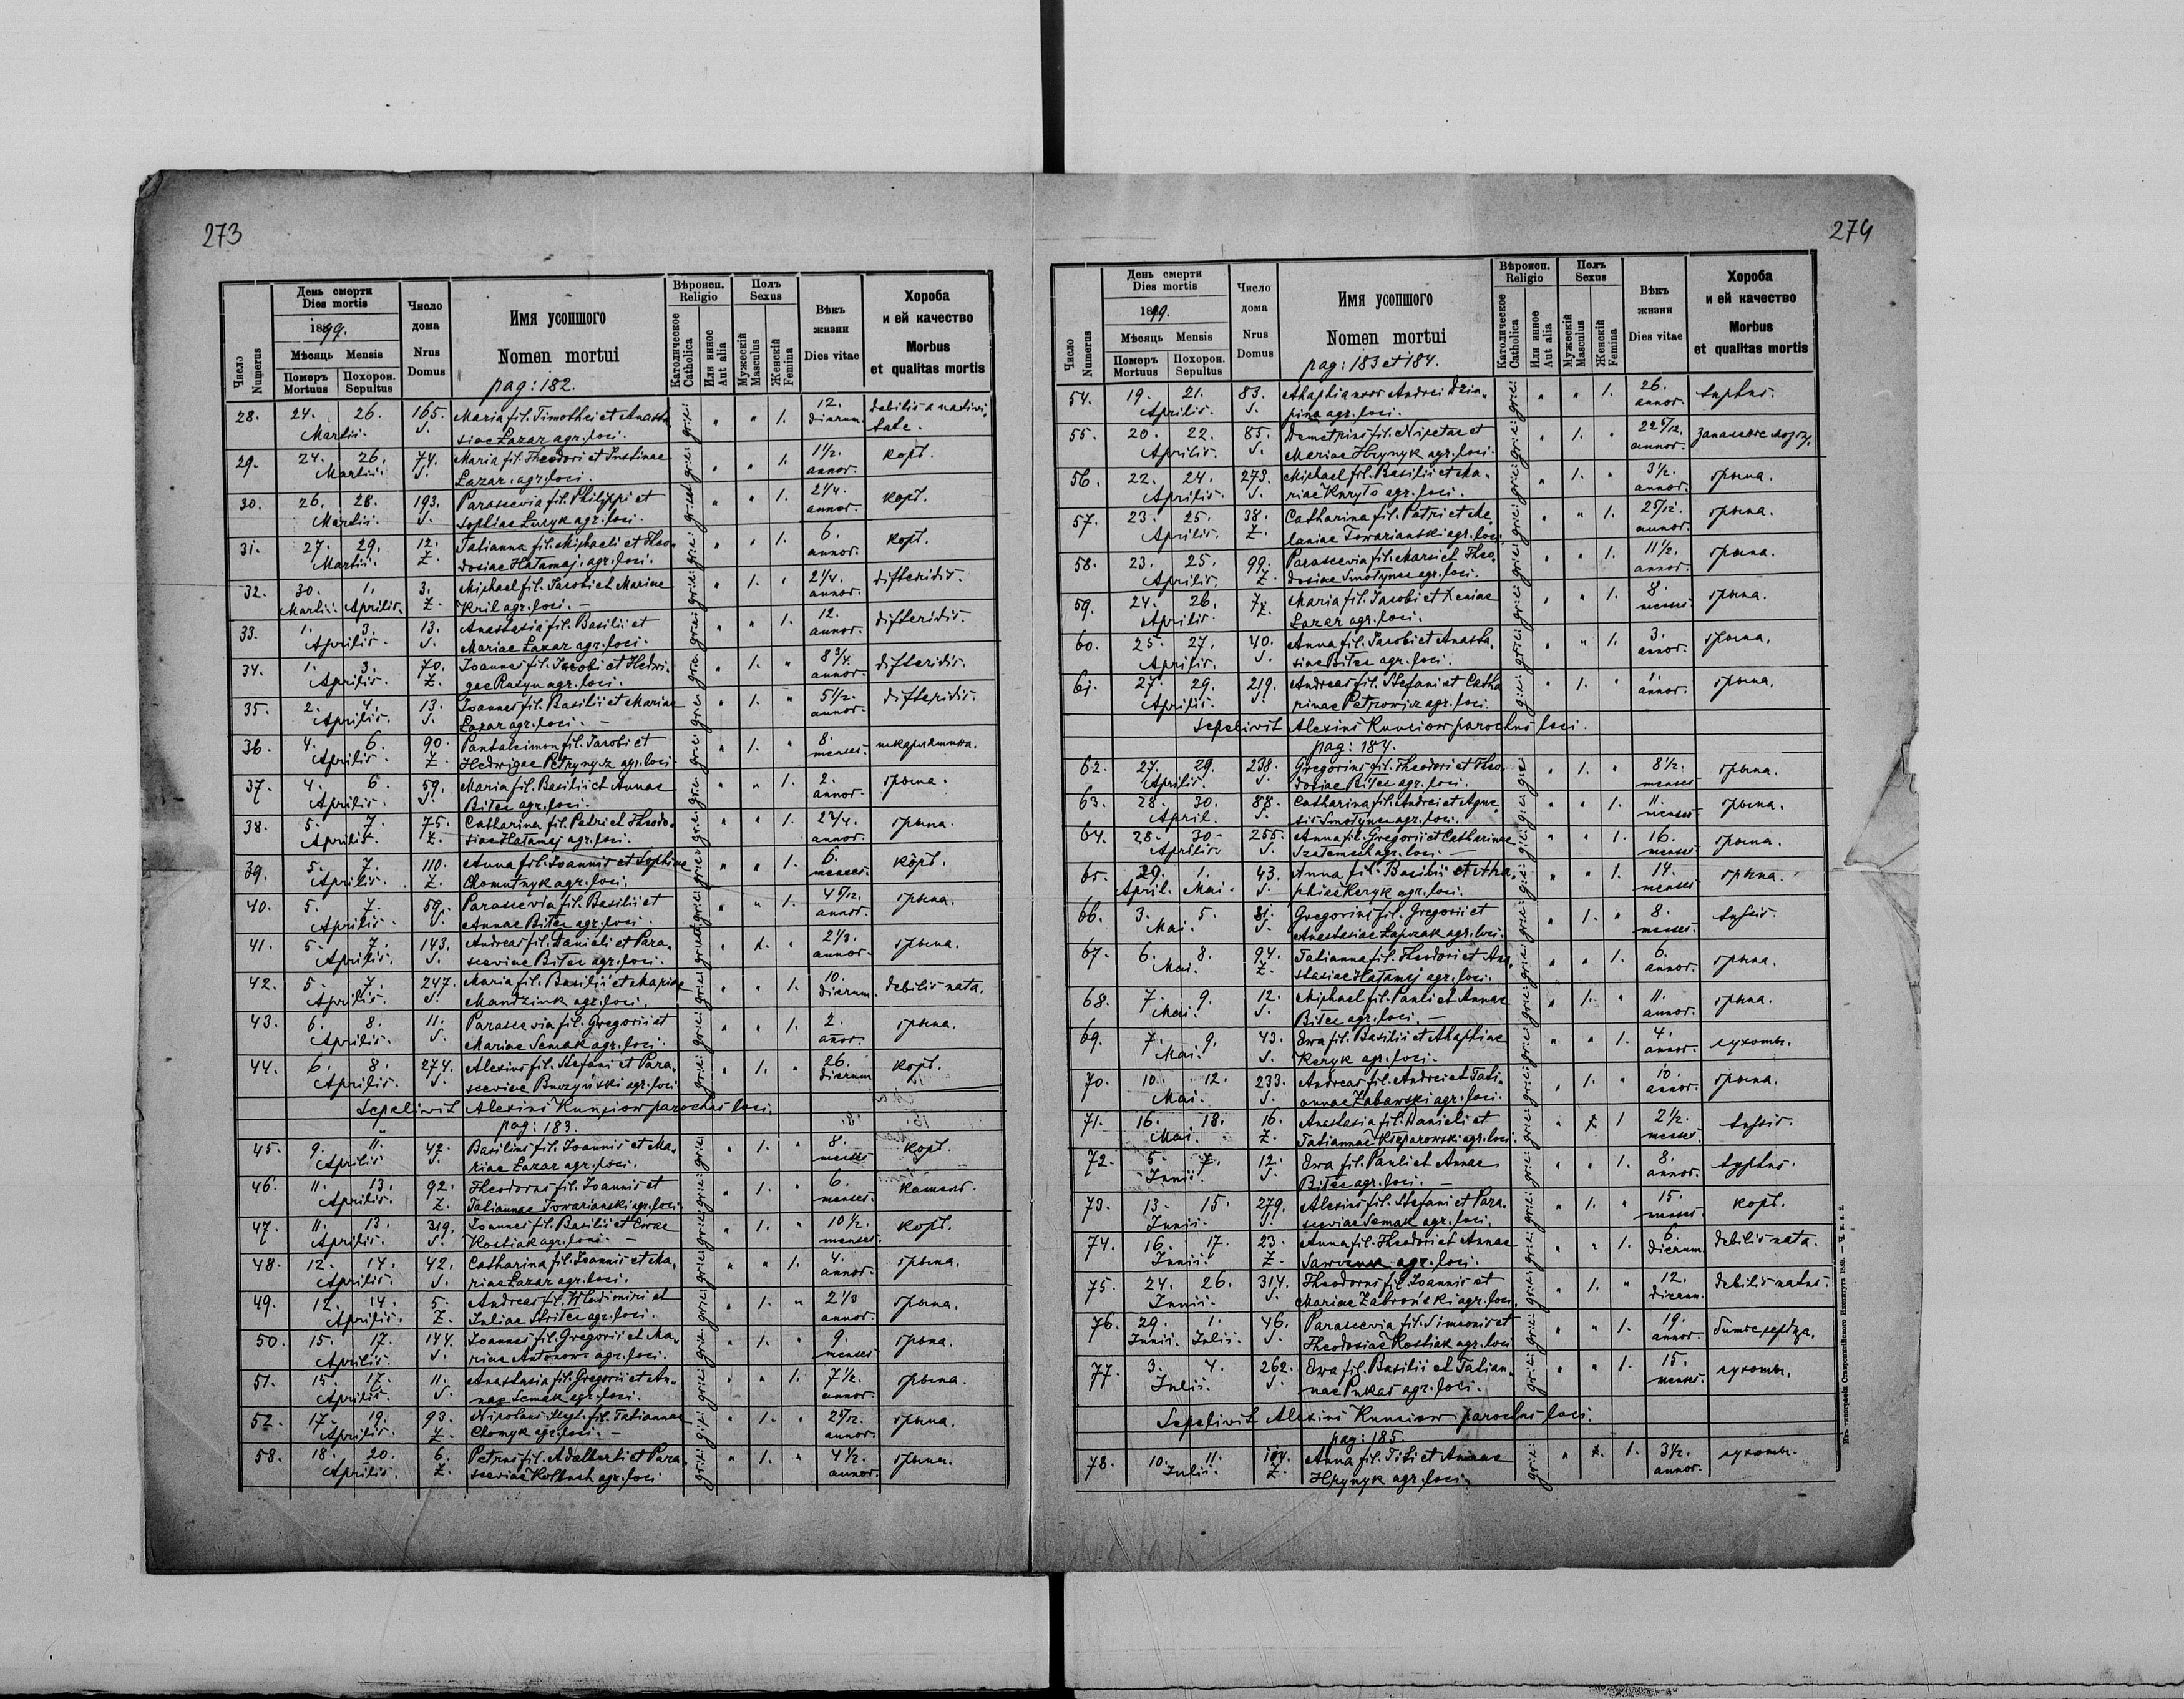 273
Число Numerus
День смерти Dies mortis
1899.
Мѣсяць Mensis
Померъ Mortuus
Похорон. Sepultus
Число дома Nrus Domus
Имя усопшого
Nomen mortui
pag: 182.
Вѣроисп. Religio
Католическое Catholica
Или инное Aut alia
Полъ Sexus
Мужескій Masculus
Женскій Femina
Вѣкъ жизни Dies vitae
Хороба и ей качество
Morbus et qualitas mortis
28. 24. 26. 165. Maria fil. Timothei et Anasta 1. 12. debilis a nativi
Martii. S. siae Lazar agr. loci. dierum. tate.
29. 24. 26. 74. Maria fil. Theodori et Justinae 1. 1 1/2. корь.
Martii. S. Lazar agr. loci. annor.
30. 26. 28. 193. Parascevia fil. Philippi et 1. 2 1/4. корь.
Martii. S. Sophiae agr. loci. annor.
31. 27. 29. 12. Tatianna fil. Michaeli et Theo 1. 6. корь.
Martii. Z. dosiae Hałamaj agr. loci. annor.
32. 30. 1. 3. Michael fil. Jacobi et Mariae 1. 2 1/4. difteridis.
Martii. Aprilis. Z. Kril agr. loci. – annor.
33. 1. 3. 13. Anastasia fil. Basilii et 1. 12. difteridis.
Aprilis. S. Mariae Lazar agr. loci. annor.
34. 1. 3. 70. Joannes fil. Jacobi et Hedwi 1. 8 3/4. difteridis.
Aprilis. Z. gae agr. loci. annor.
35. 2. 4. 13. Joannes fil. Basilii et Mariae 1. 5 1/2. difteridis.
Aprilis. S. Lazar agr. loci. – annor.
36. 4. 6. 90. Pantaleimon fil. Jacobi et 1. 8. шкарлатина.
Aprilis. Z. Hedwigae Petrynycz agr. loci. menses.
37. 4. 6. 59. Maria fil. Basilii et Annae 1. 2. грына.
Aprilis. S. Bitec agr. loci. annor.
38. 5. 7. 75. Catharina fil. Petri et Theodo 1. 2 3/4. грына.
Aprilis. Z. siae Hałamaj agr. loci. annor.
39. 5. 7. 110. Anna fil. Joannis et Sophiae 1. 6. корь.
Aprilis. Z. Chomutnyk agr. loci. menses.
40. 5. 7. 59. Parascevia fil. Basilii et 1. 4 5/12. грына.
Aprilis. S. Annae Bitec agr. loci. annor.
41. 5. 7. 143. Andreas fil. Danieli et Para 1. 2 1/3. грына.
Aprilis. S. sceviae Bitec agr. loci. annor.
42. 5. 7. 247. Maria fil. Basilii et Mariae 1. 10. debilis nata.
Aprilis. S. Mandziuk agr. loci. dierum.
43. 6. 8. 11. Parascevia fil. Gregorii et 1. 2. грына.
Aprilis. S. Mariae Semak agr. loci. anor.
44. 6. 8. 274. Alexius fil. Stefani et Para 1. 26. корь.
Aprilis. S. sceviae Buczyński agr. loci. dierum
Sepelivit Alexius Kunciow parochus loci.
pag: 183.
45. 9. 11. 42. Basilius fil. Joannis et Ma 1. 8. корь.
Aprilis S. riae Lazar agr. loci. menses
46. 11. 13. 92. Theodorus fil. Joannis et 1. 6.
Aprilis. Z. Tatiannae Towarianski agr. loci. menses.
47. 11. 13. 319. Joannes fil. Basilii et Evae 1. 10 1/2. корь.
Aprilis. S. Kostiak agr. loci. – menses.
48. 12. 14. 42. Catharina fil. Joannis et Ma 1. 4. грына.
Aprilis. S. riae Lazar agr. loci. annor.
49. 12. 14. 5. Andreas fil. Wladimiri et 1. 2 1/3 грына.
Aprilis. Z. Juliae agr. loci. annor.
50. 15. 17. 144. Joannes fil. Gregorii et Ma 1. 9. грына.
Aprilis. S. riae Antonow agr. loci. menses
51. 15. 17. 11. Anastasia fil. Gregorii et An 1. 7 1/2. грына.
Aprilis. S. nae Semak agr. loci. annor.
52. 17. 19. 93. Nicolaus illegt. fil. Tatiannae 1. 2 5/12. грына.
Aprilis. Z. Chomyk agr. loci. – annor.
53. 18. 20. 6. Petrus fil. Adalberti et Para 1. 4 1/2. грына.
Aprilis. Z. sceviae agr. loci annor.
274
Число Numerus
День смерти Dies mortis
1899.
Мѣсяць Mensis
Померъ Mortuus
Похорон. Sepultus
Число дома Nrus Domus
Имя усопшого
Nomen mortui
pag: 183 et 184.
Вѣроисп. Religio
Католическое Catholica
Или инное Aut alia
Полъ Sexus
Мужескій Masculus
Женскій Femina
Вѣкъ жизни Dies vitae
Хороба и ей качество
Morbus et qualitas mortis
54. 19. 21. 83. Ahaphia uxor Andrei 1. 26. typhus.
Aprilis. S. agr. loci. annor.
55. 20. 22. 85. Demetrius fil. Nicetae et 1. 22 5/12.
Aprilis. S. Mariae Hrynyk agr. loci. annor.
56. 22. 24. 273. Michael fil. Basilii et Ma 1. 3 1/2. грына.
Aprilis. S. riae Kuryło agr. loci. annor.
57. 23. 25. 38. Catharina fil. Petri et Me 1. 2 5/12. грына.
Aprilis. Z. laniae Towarianski agr. loci. annor.
58. 23. 25. 99. Parascevia fil. Marci et Theo 1. 11 1/2. грына.
Aprilis. Z. dosiae Smotynec agr. loci. annor.
59. 24. 26. 7. Maria fil. Jacobi et Xeniae 1. 8. грына.
Aprilis. Z. Lazar agr. loci. menses
60. 25. 27. 40. Anna fil. Jacobi et Anasta 1. 3. грына.
Aprilis. S. siae Bitec agr. loci. annor.
61. 27. 29. 219. Andreas fil. Stefani et Catha 1. 1. грына.
Aprilis. S. rinae Petrowicz agr. loci. annor.
Sepelivit Alexius Kunciow parochus loci.
pag: 184.
62. 27. 29. 238. Gregorius fil. Theodori et Theo 1. 8 1/2. грына.
Aprilis. S. dosiae Bitec agr. loci. menses
63. 28. 30. 88. Catharina fil. Andrei et Agne 1. 11. грына.
April. S. tis Smotynec agr. loci. menses.
64. 28. 30. 255. Anna fil. Gregorii et Catharinae 1. 16. грына.
Aprilis. S. agr. loci. – menses
65. 29. 1. 43. Anna fil. Basilii et Aha 1. 14. грына.
April. Mai. S. phiae Keryk agr. loci. menses
66. 3. 5. 81. Gregorius fil. Gregorii et 1. 8. tussis.
Mai. S. Anastasiae Lapczak agr. loci. menses.
67. 6. 8. 94. Tatianna fil. Theodori et Ana 1. 6. грына.
Mai. Z. stasiae Hałamaj agr. loci. annor.
68. 7. 9. 12. Michael fil. Pauli et Annae 1. 11. грына.
Mai. S. Bitec agr. loci. – annor.
69. 7. 9. 43. Ewa fil. Basilii et Ahaphiae 1. 4. сухоты.
Mai. S. Keryk agr. loci. annor.
70. 10. 12. 233. Andreas fil. Andrei et Tati 1. 10. грына.
Mai. S. annae Zabawski agr. loci. annor.
71. 16. 18. 16. Anastasia fil. Danieli et 1 2 1/2. tussis.
Mai. Z. Tatiannae agr. loci. menses.
72. 5. 7. 12. Ewa fil. Pauli et Annae 1. 8. typhus.
Junii. S. Bitec agr. loci. – annor.
73. 13. 15. 279. Alexius fil. Stefani et Para 1. 15. корь.
Junii. S. sceviae Semak agr. loci. menses.
74. 16. 17. 23. Anna fil. Theodori et Annae 1. 6. debilis nata.
Junii. Z. agr. loci. dierum.
75. 24. 26. 314. Theodorus fil. Joannis et 1. 12. debilis natus.
Junii. S. Mariae Zabroński agr. loci. dierum.
76. 29. 1. 46. Parascevia fil. Simeonis et 1. 19. битє сердца.
Junii. Julii. S. Theodosiae Kostiak agr. loci annor.
77. 3. 4. 262. Ewa fil. Basilii et Tatian 1. 15. сухоты.
Julii. S. nae Pukas agr. loci. menses.
Sepelivit Alexius Kunciow parochus loci.
pag: 185.
78. 10. 11. 104. Anna fil. Titi et Annae 1. 3 1/2. сухоты.
Julii. Z. Hrynyk agr. loci. annor.
Изъ типографіи Ставропигійского Института 1889.